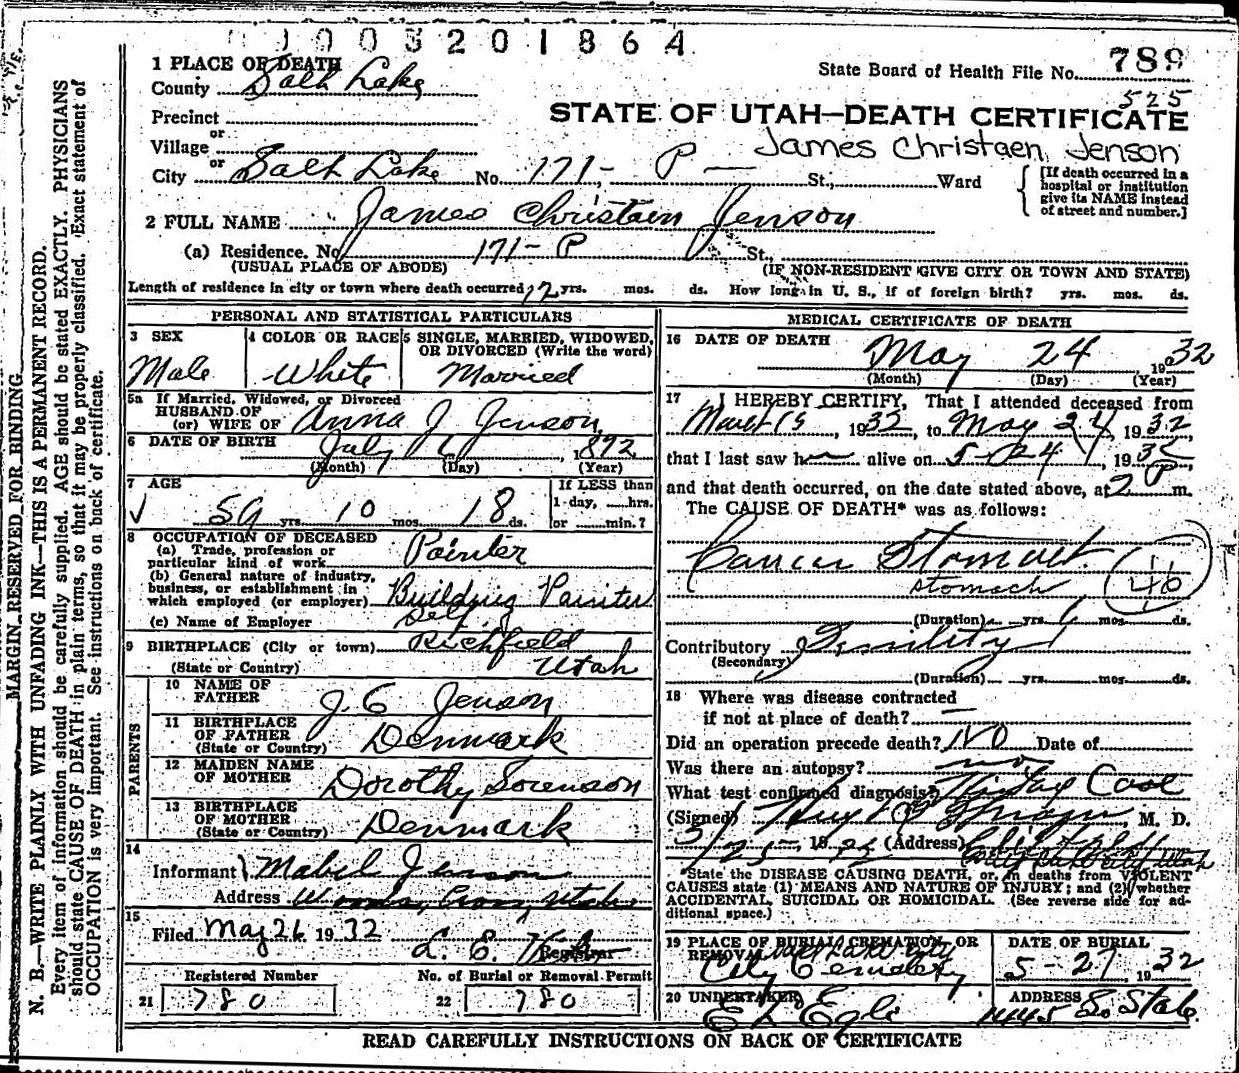 0003201864
789
State Board of Health File No.
525
1 PLACE OF DEATH
County Salt Lake
STATE OF UTAH—DEATH CERTIFICATE
Precinct
or
Village
James Christaen Jenson
or
City Salt Lake No. 171- P — St., Ward
[If death occurred in a
hospital or institution
give its NAME instead
of street and number.]
2 FULL NAME James Christaen Jenson
(a) Residence. No. 171- P St.,
(USUAL PLACE OF ABODE)
(IF NON-RESIDENT GIVE CITY OR TOWN AND STATE)
Length of residence in city or town where death occurred 12 yrs. mos. ds. How long in U. S., if of foreign birth? yrs. mos. ds.
PERSONAL AND STATISTICAL PARTICULARS
3 SEX
Male
4 COLOR OR RACE
White
5 SINGLE, MARRIED, WIDOWED,
OR DIVORCED (Write the word)
Married
5a If Married, Widowed, or Divorced
HUSBAND OF
(or) WIFE OF Anna J Jenson
6 DATE OF BIRTH July 6, 1872
(Month) (Day) (Year)
7 AGE
59 yrs. 10 mos. 18 ds.
If LESS than
1-day, hrs.
or min.?
8 OCCUPATION OF DECEASED
(a) Trade, profession or
particular kind of work Painter
(b) General nature of industry,
business, or establishment in
which employed (or employer) Building Painter
(c) Name of Employer Self
9 BIRTHPLACE (City or town) Richfield
(State or Country) Utah
PARENTS
10 NAME OF
FATHER J. C Jenson
11 BIRTHPLACE
OF FATHER
(State or Country) Denmark
12 MAIDEN NAME
OF MOTHER Dorothy Sorenson
13 BIRTHPLACE
OF MOTHER
(State or Country) Denmark
14
Informant Mabel Jenson
Address Woods Cross, Utah
15
Filed May 26 1932 L. E.
Registrar
Registered Number
21 780
No. of Burial or Removal Permit
22 780
MEDICAL CERTIFICATE OF DEATH
16 DATE OF DEATH
May 24 1932
(Month) (Day) (Year)
17 I HEREBY CERTIFY, That I attended deceased from
March 15, 1932, to May 24, 1932,
that I last saw h alive on 5-24, 1932,
and that death occurred, on the date stated above, at 2 P m.
The CAUSE OF DEATH* was as follows:
Cancer Stomach
stomach
46
(Duration) yrs. mos. ds.
Contributory
(Secondary)
(Duration) yrs. mos. ds.
18 Where was disease contracted
if not at place of death? —
Did an operation precede death? NO Date of
Was there an autopsy? no
What test confirmed diagnosis?
(Signed) M. D.
5/25 - 1932 (Address)
*State the DISEASE CAUSING DEATH, or, in deaths from VIOLENT
CAUSES state (1) MEANS AND NATURE OF INJURY; and (2) whether
ACCIDENTAL, SUICIDAL OR HOMICIDAL. (See reverse side for ad-
ditional space.)
19 PLACE OF BURIAL, CREMATION, OR
REMOVAL Salt Lake City
City Cemetery
DATE OF BURIAL
5-27 1932
20 UNDERTAKER
E L Egli
ADDRESS
1445 So. State
READ CAREFULLY INSTRUCTIONS ON BACK OF CERTIFICATE
MARGIN RESERVED FOR BINDING
N. B.—WRITE PLAINLY WITH UNFADING INK—THIS IS A PERMANENT RECORD.
Every item of information should be carefully supplied. AGE should be stated EXACTLY. PHYSICIANS
should state CAUSE OF DEATH in plain terms, so that it may be properly classified. Exact statement of
OCCUPATION is very important. See instructions on back of certificate.